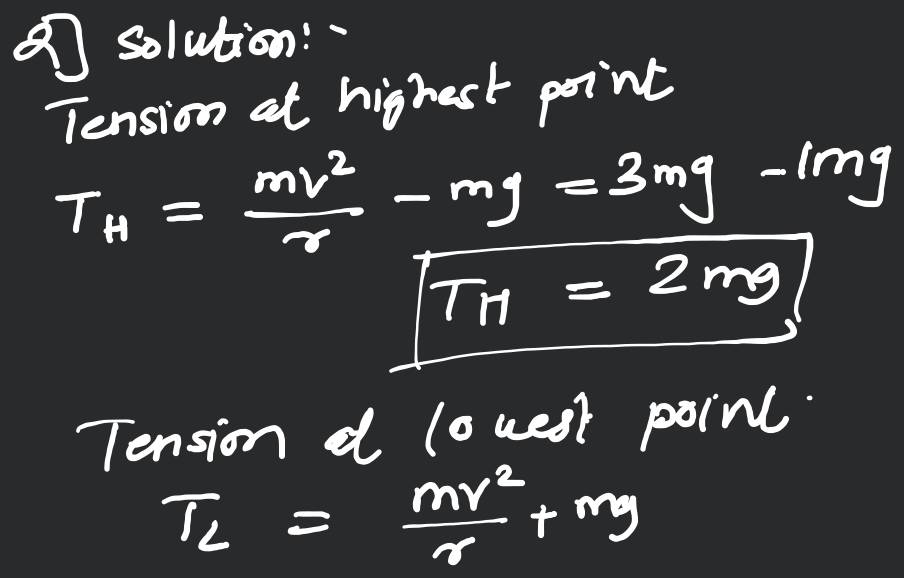 2] Solution:-
Tension at highest point
T_H = mv²/r - mg = 3mg - 1mg
T_H = 2mg
Tension at lowest point.
T_L = mv²/r + mg